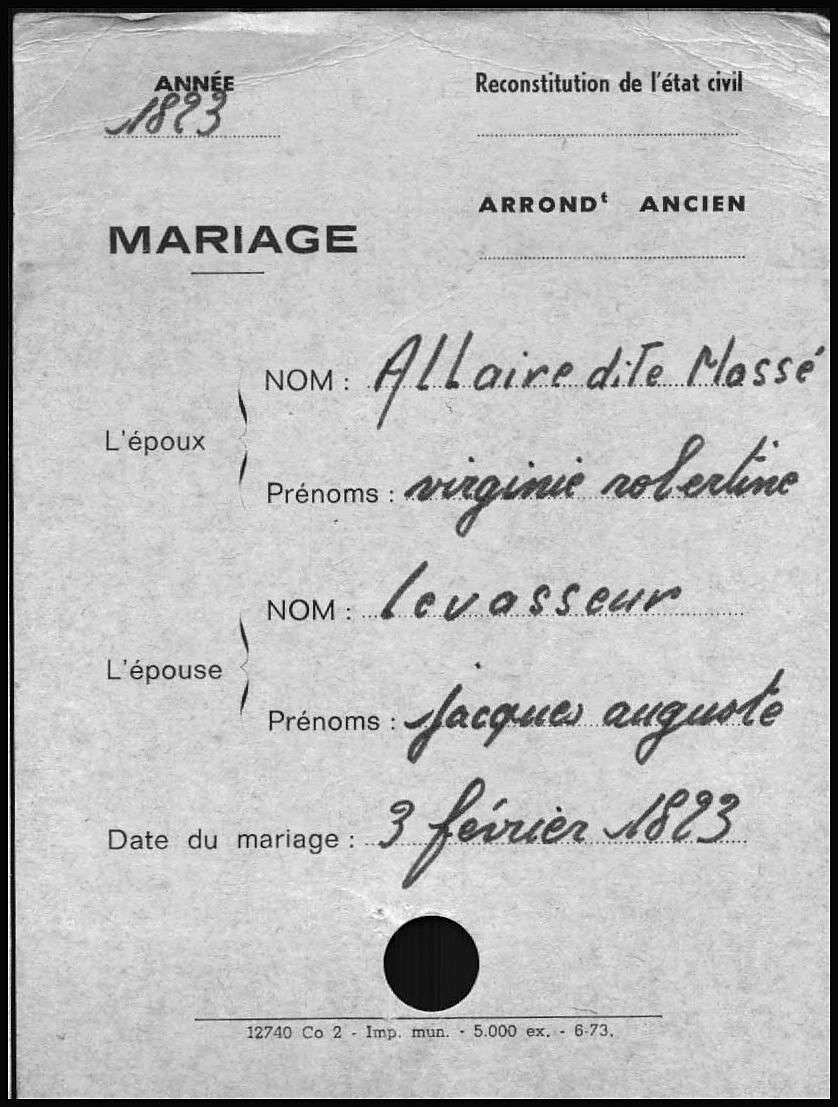 ANNÉE
1823
Reconstitution de l'état civil
ARRONDt ANCIEN
MARIAGE
L'époux
NOM : Allaire dite Massé
Prénoms : virginie robertine
L'épouse
NOM : levasseur
Prénoms : jacques auguste
Date du mariage : 3 février 1823
12740 Co 2 - Imp. mun. - 5.000 ex. - 6-73.